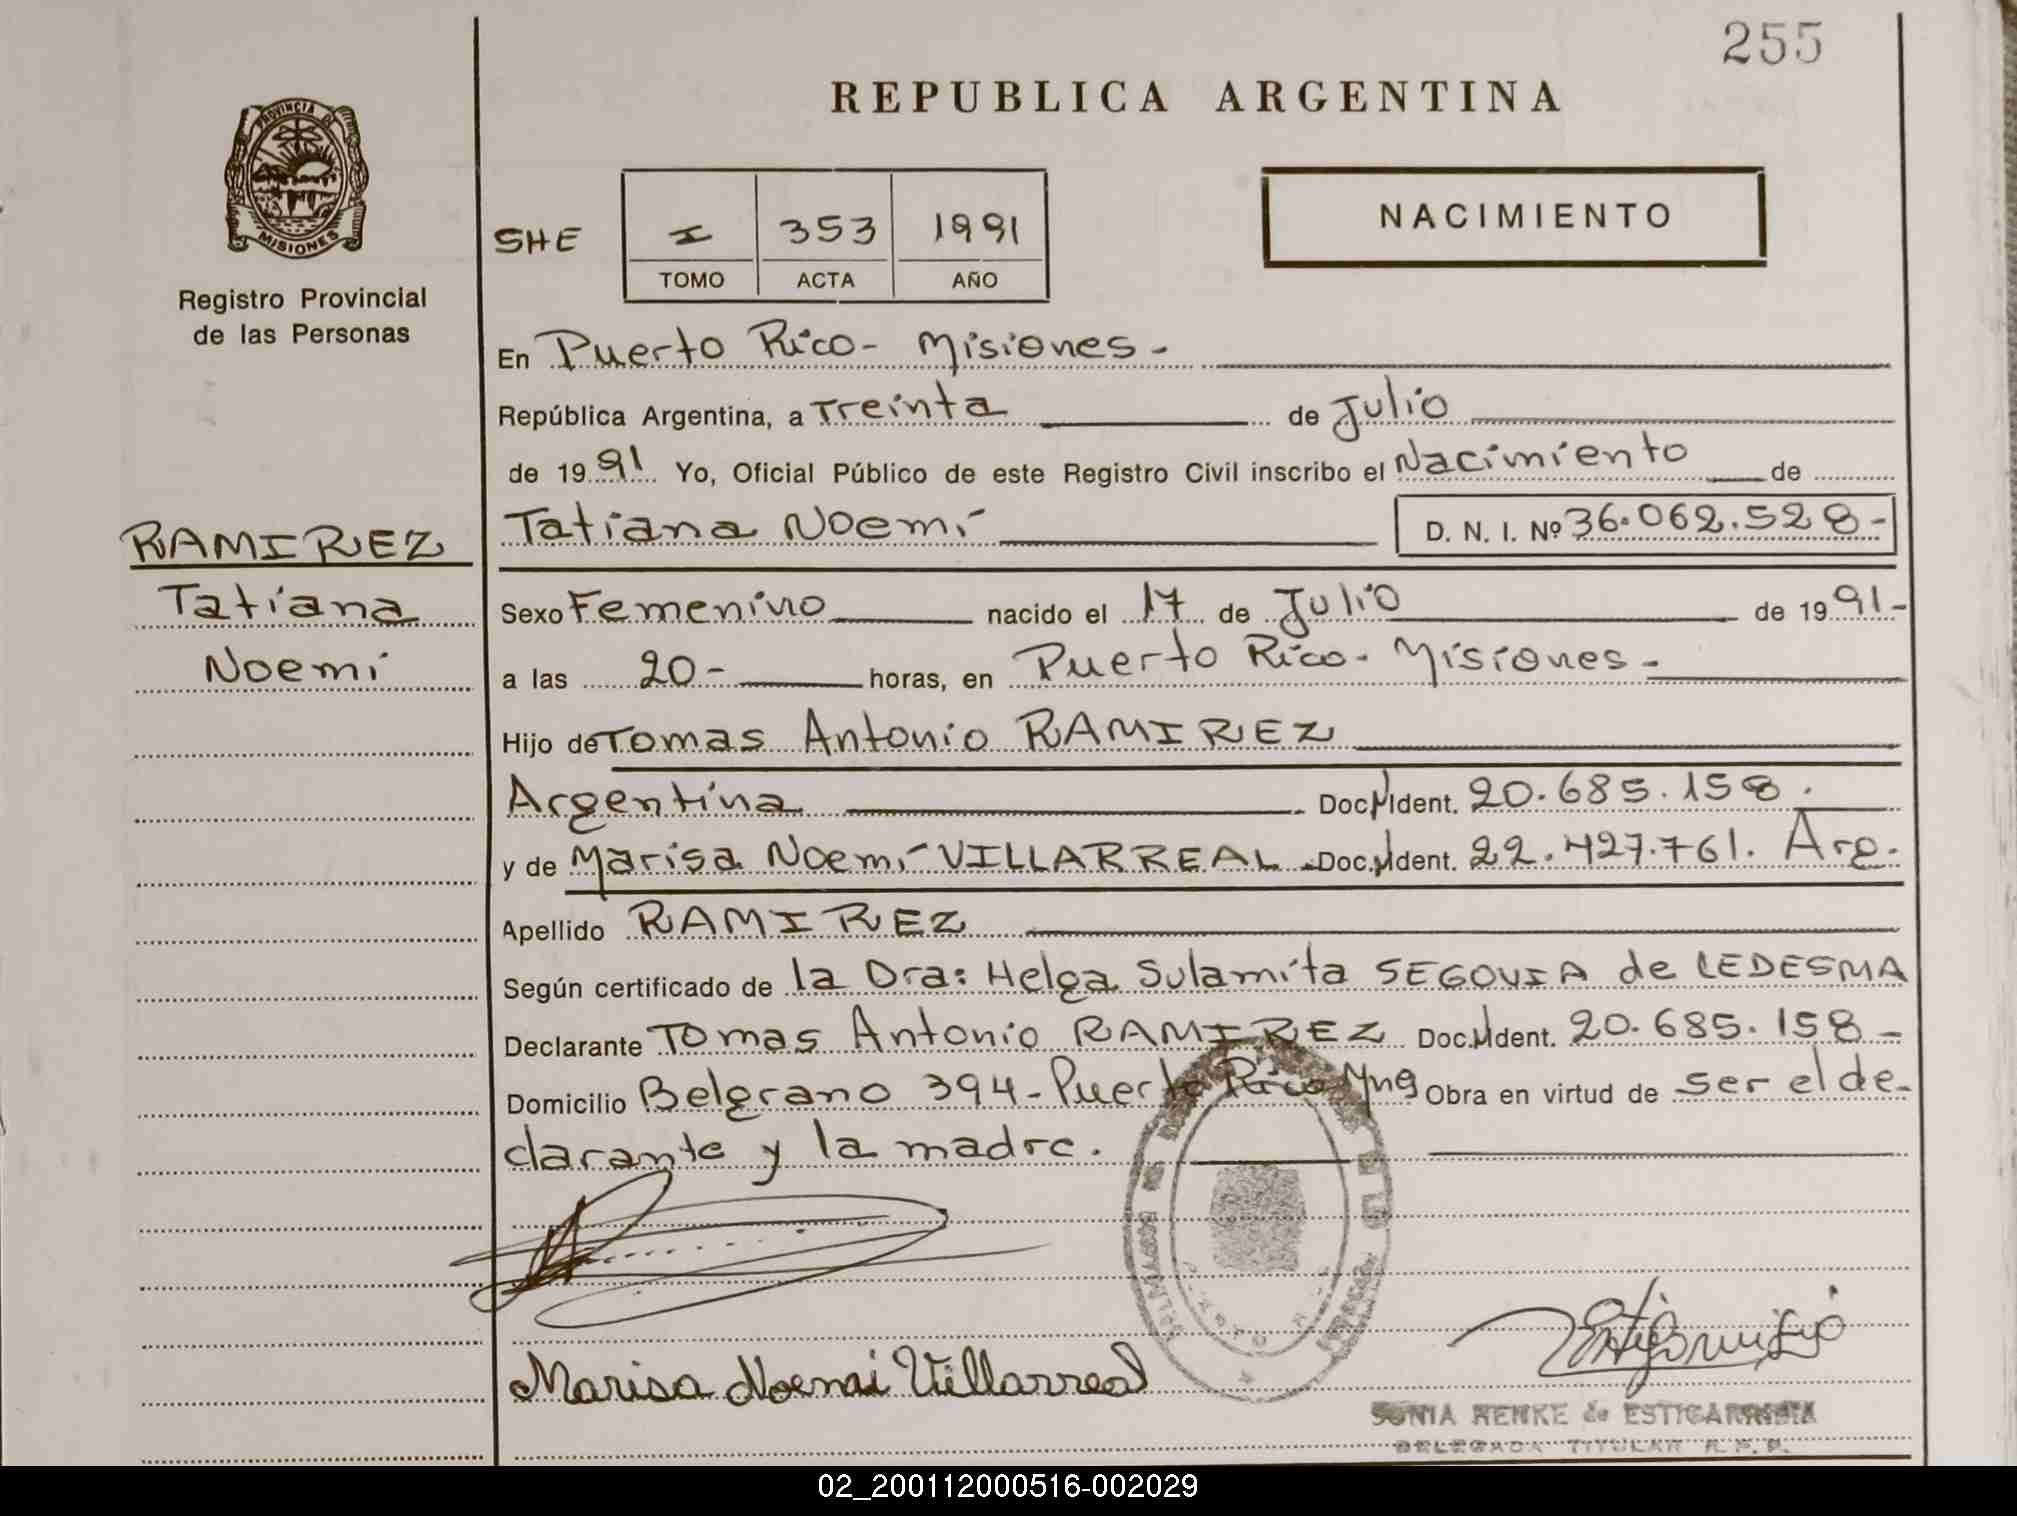 255
REPUBLICA ARGENTINA
PROVINCIA DE
MISIONES
Registro Provincial
de las Personas
SHE
I 353 1991
TOMO ACTA AÑO
NACIMIENTO
En Puerto Rico- Misiones-
República Argentina, a Treinta de Julio
de 1991 Yo, Oficial Público de este Registro Civil inscribo el Nacimiento de
RAMIREZ
Tatiana
Noemi
Tatiana Noemí D. N. I. Nº 36.062.528-
Sexo Femenino nacido el 17 de Julio de 1991-
a las 20- horas, en Puerto Rico- Misiones-
Hijo de Tomas Antonio RAMIREZ
Argentina Doc. Ident. 20.685.158.
y de Marisa Noemí VILLARREAL Doc. Ident. 22.427.761. Arg.
Apellido RAMIREZ
Según certificado de la Dra: Helga Sulamita SEGOVIA de LEDESMA
Declarante Tomas Antonio RAMIREZ Doc. Ident. 20.685.158-
Domicilio Belgrano 394- Puerto Rico Mnes Obra en virtud de ser el de-
clarante y la madre.
Marisa Noemi Villarreal
SONIA HENKE de ESTIGARRIBIA
DELEGADA TITULAR R.P.P.
02_200112000516-002029